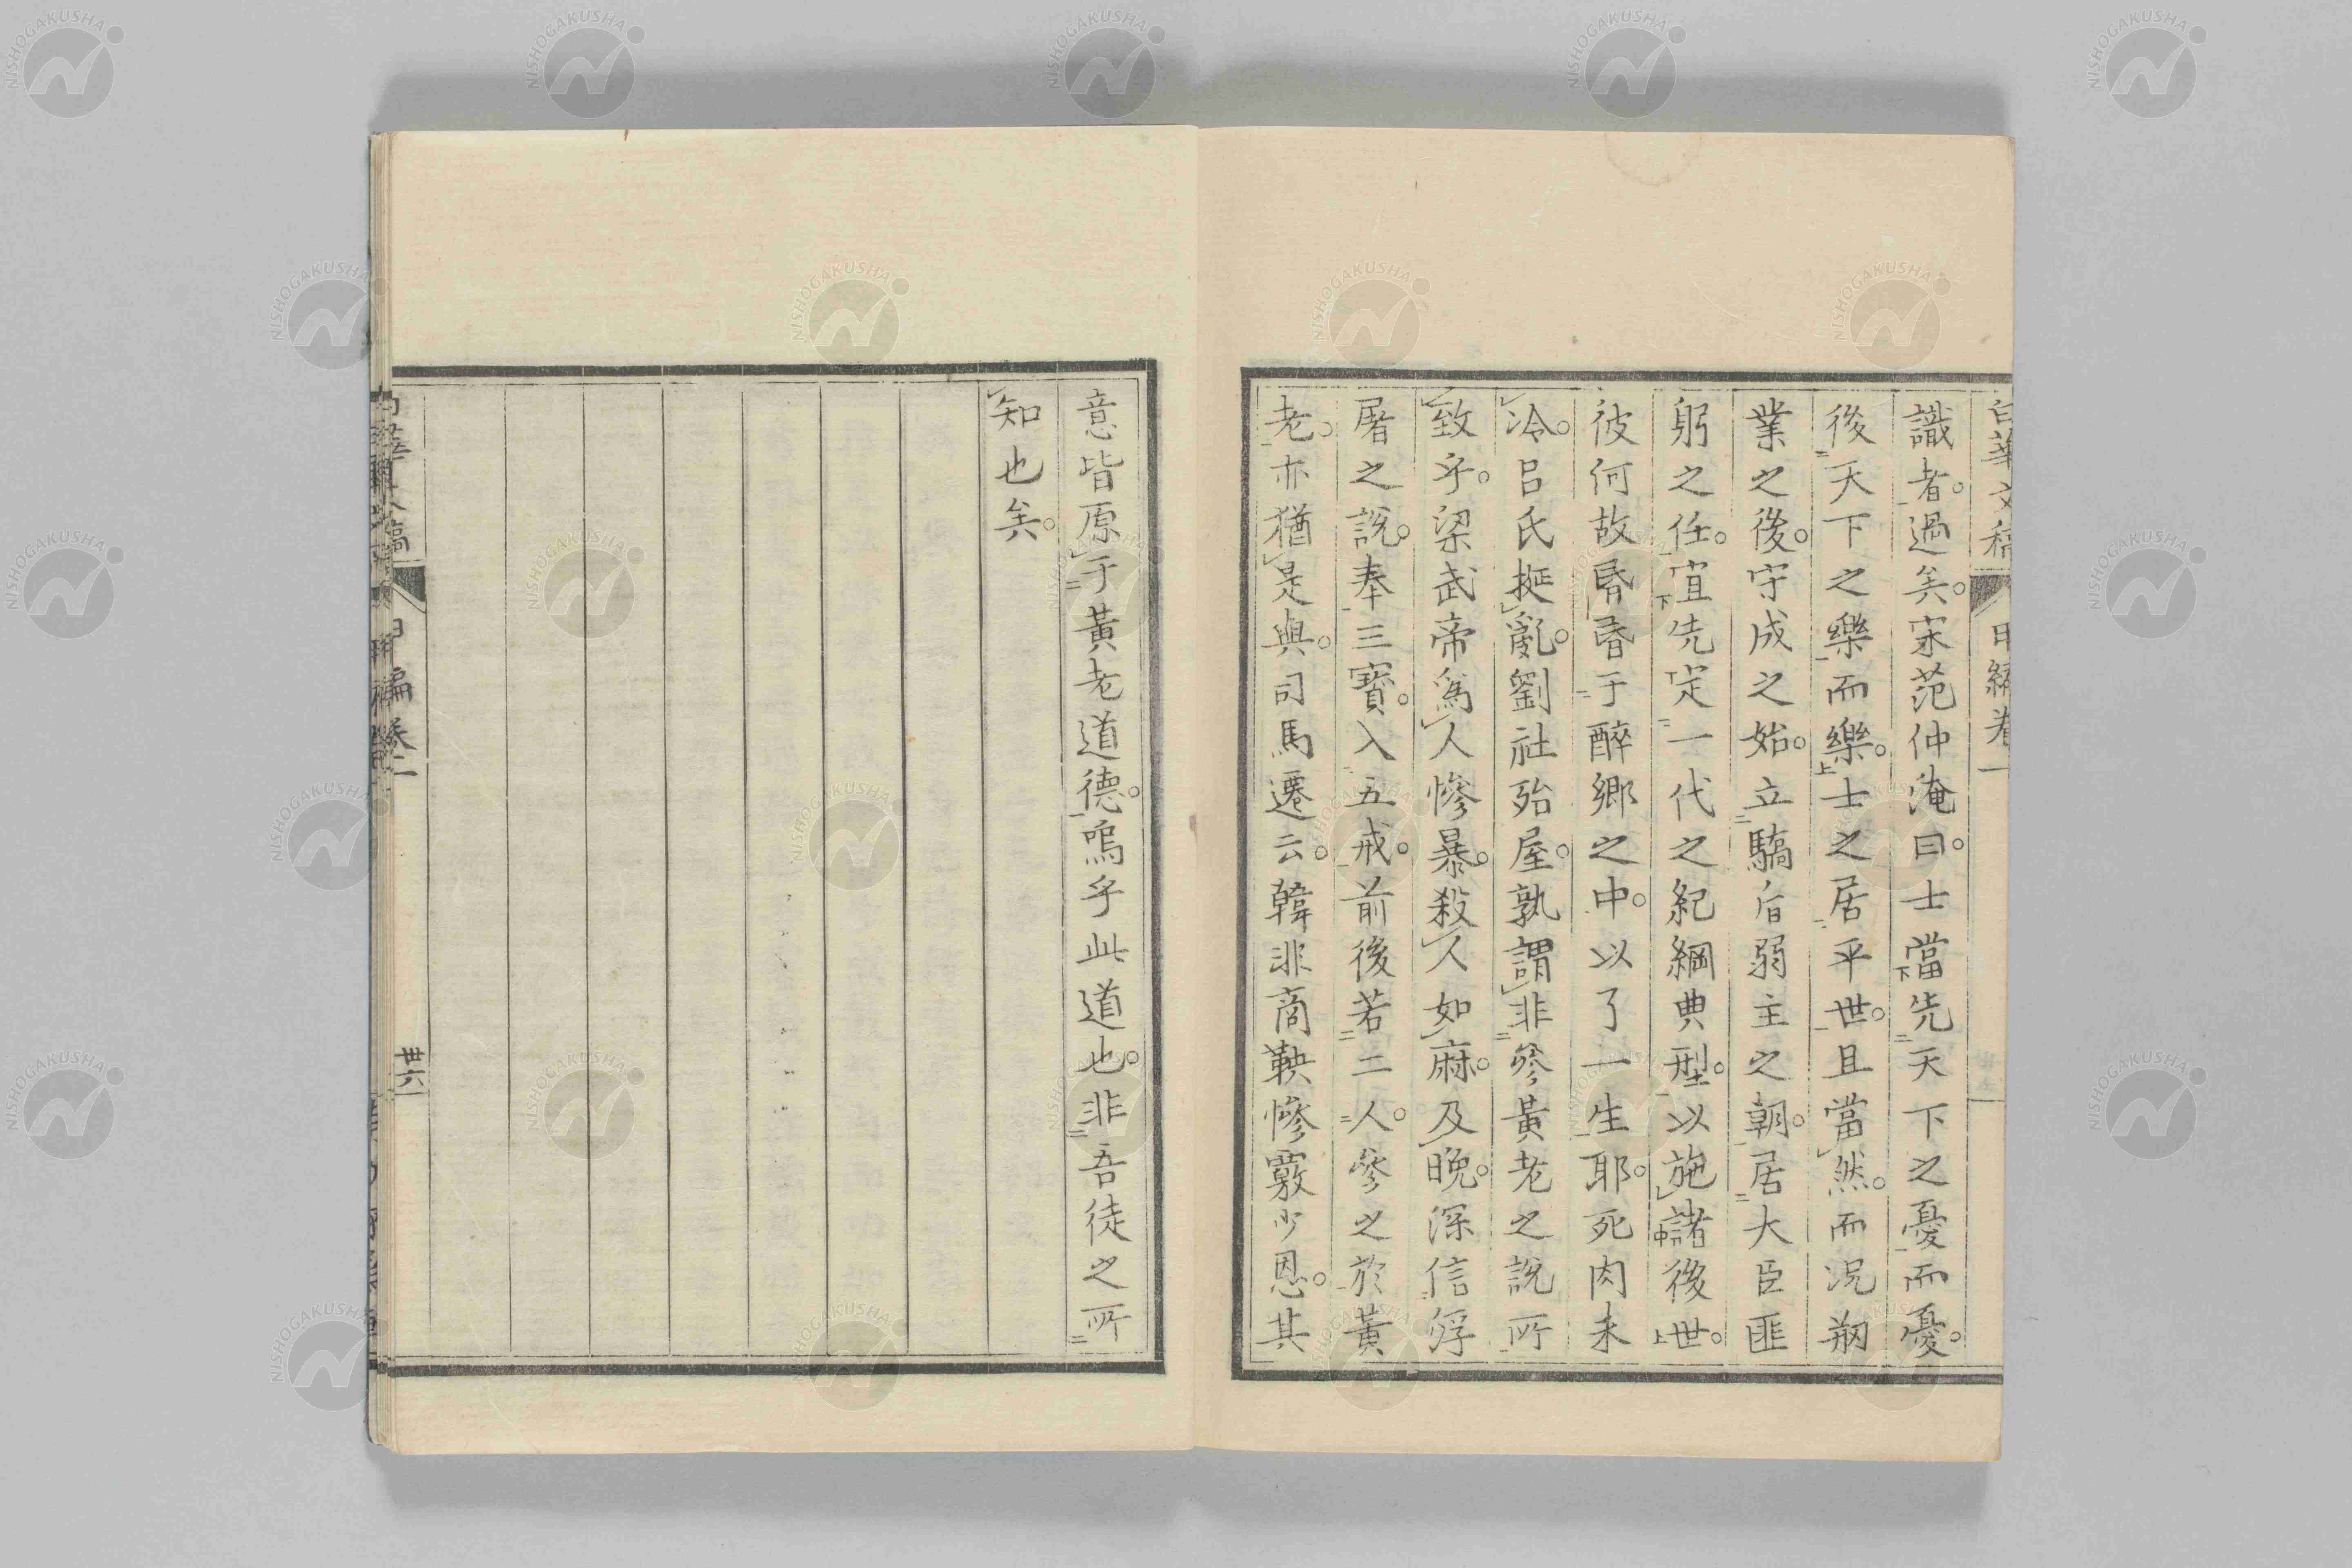 白華文稿 甲編卷一
識者。過矣。宋范仲淹曰。士當先天下之憂而憂。
後天下之樂而樂。士之居平世。且當然。而况剏
業之後。守成之始。立驕后弱主之朝。居大臣匪
躬之任。宜先定一代之紀綱典型。以施諸後世。
彼何故昏昏于醉鄉之中。以了一生耶。死肉未
冷。呂氏挻亂。劉社殆屋。孰謂非參黃老之說所
致乎。梁武帝爲人慘暴。殺人如麻。及晚。深信浮
屠之說。奉三寶。入五戒。前後若二人。參之於黃
老。亦猶是與。司馬遷云。韓非商鞅慘覈少恩。其
意皆原于黃老道德。嗚乎此道也。非吾徒之所
知也矣。
甲編卷二
卅六
NISHOGAKUSHA